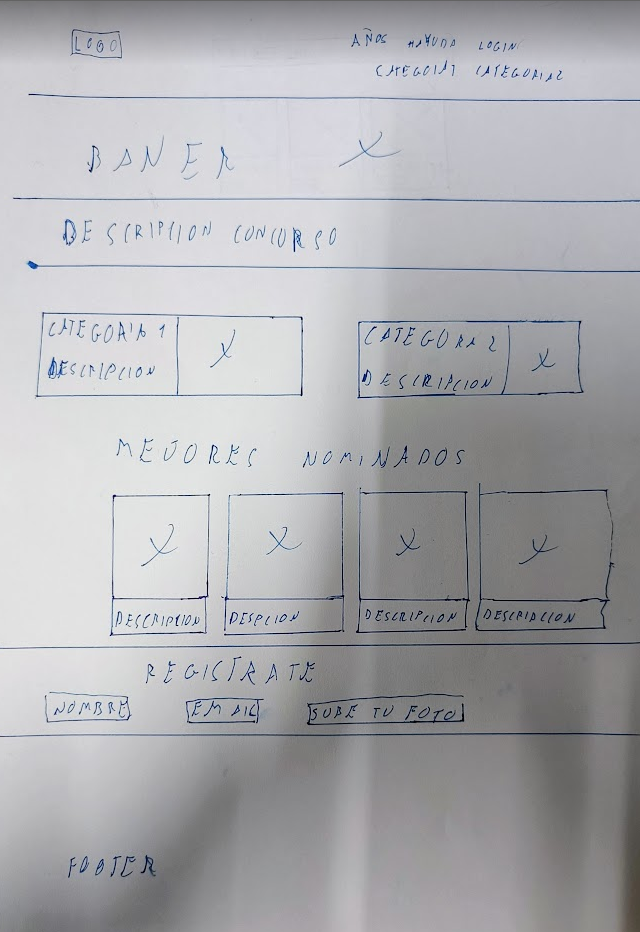 LOGO
AÑOS HAYUDA LOGIN
CATEGOIA1 CATEGORIA2
BANER X
DESCRIPCION CONCURSO
CATEGORIA 1 X
DESCRIPCION
CATEGORIA 2 X
DESCRIPCION
MEJORES NOMINADOS
X X X X
DESCRIPCION DESPCION DESCRIPCION DESCRIPCION
REGISTRATE
NOMBRE EMAIL SUBE TU FOTO
FOOTER